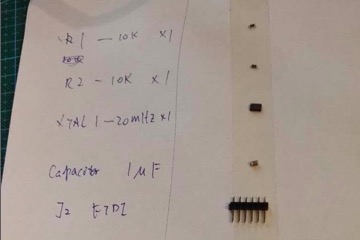 R1 - 10K x1
R2 - 10K x1
XTAL1 - 20mHz x1
Capacitor 1µF
J2 FTDI